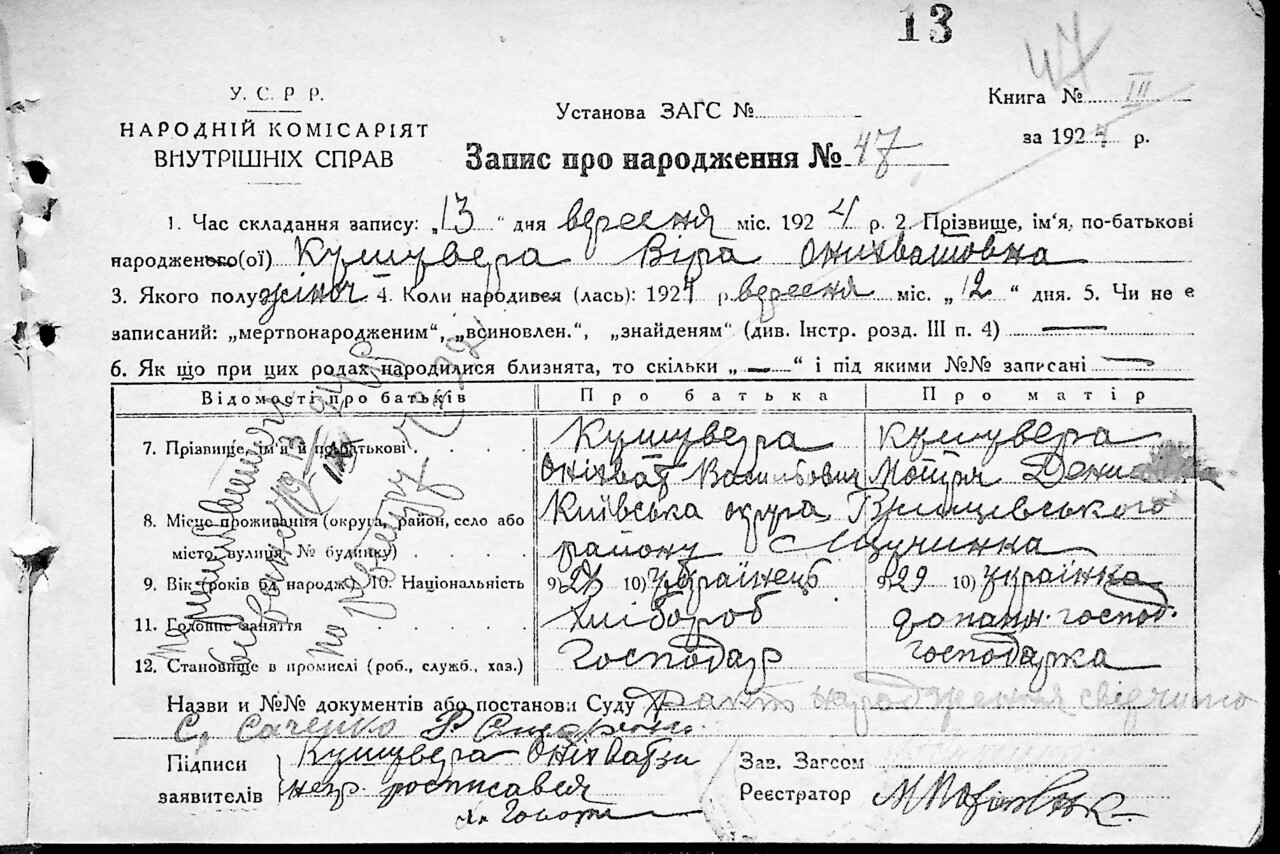 13
47
У. С. Р. Р.
НАРОДНІЙ КОМІСАРІЯТ
ВНУТРІШНІХ СПРАВ
Установа ЗАГС №
Книга № III
за 1924 р.
Запис про народження № 47
1. Час складання запису: „13“ дня вересня міс. 1924 р. 2. Прізвище, ім‘я, по-батькові
народженого(ої) Кушувера Віра Онихватовна
3. Якого полу жіноч 4. Коли народився (лась): 1924 р. вересня міс. „12“ дня. 5. Чи не є
записаний: „мертвонародженим“, „всиновлен.“, „знайденям“ (див. Інстр. розд. III п. 4) —
6. Як що при цих родах народилися близнята, то скільки „—“ і під якими №№ записані —
Відомості про батьків Про батька Про матір
7. Прізвище, ім‘я и по-батькові Кушувера Кушувера
Оніхват Васильович Мотря
8. Місце проживання (округа, район, село або Київська округа
місто, вулиця, № будинку) району
9. Вік (років од народж.) 10. Національність 9) 27 10) Українець 9) 29 10) Українка
11. Головне заняття хлібороб допаюч. господ.
12. Становище в промислі (роб., служб., хаз.) Господар господарка
Назви и №№ документів або постанови Суду факт народження свідчить
Підписи Кушувера
заявителів непр. росписався
Зав. Загсом
Реєстратор